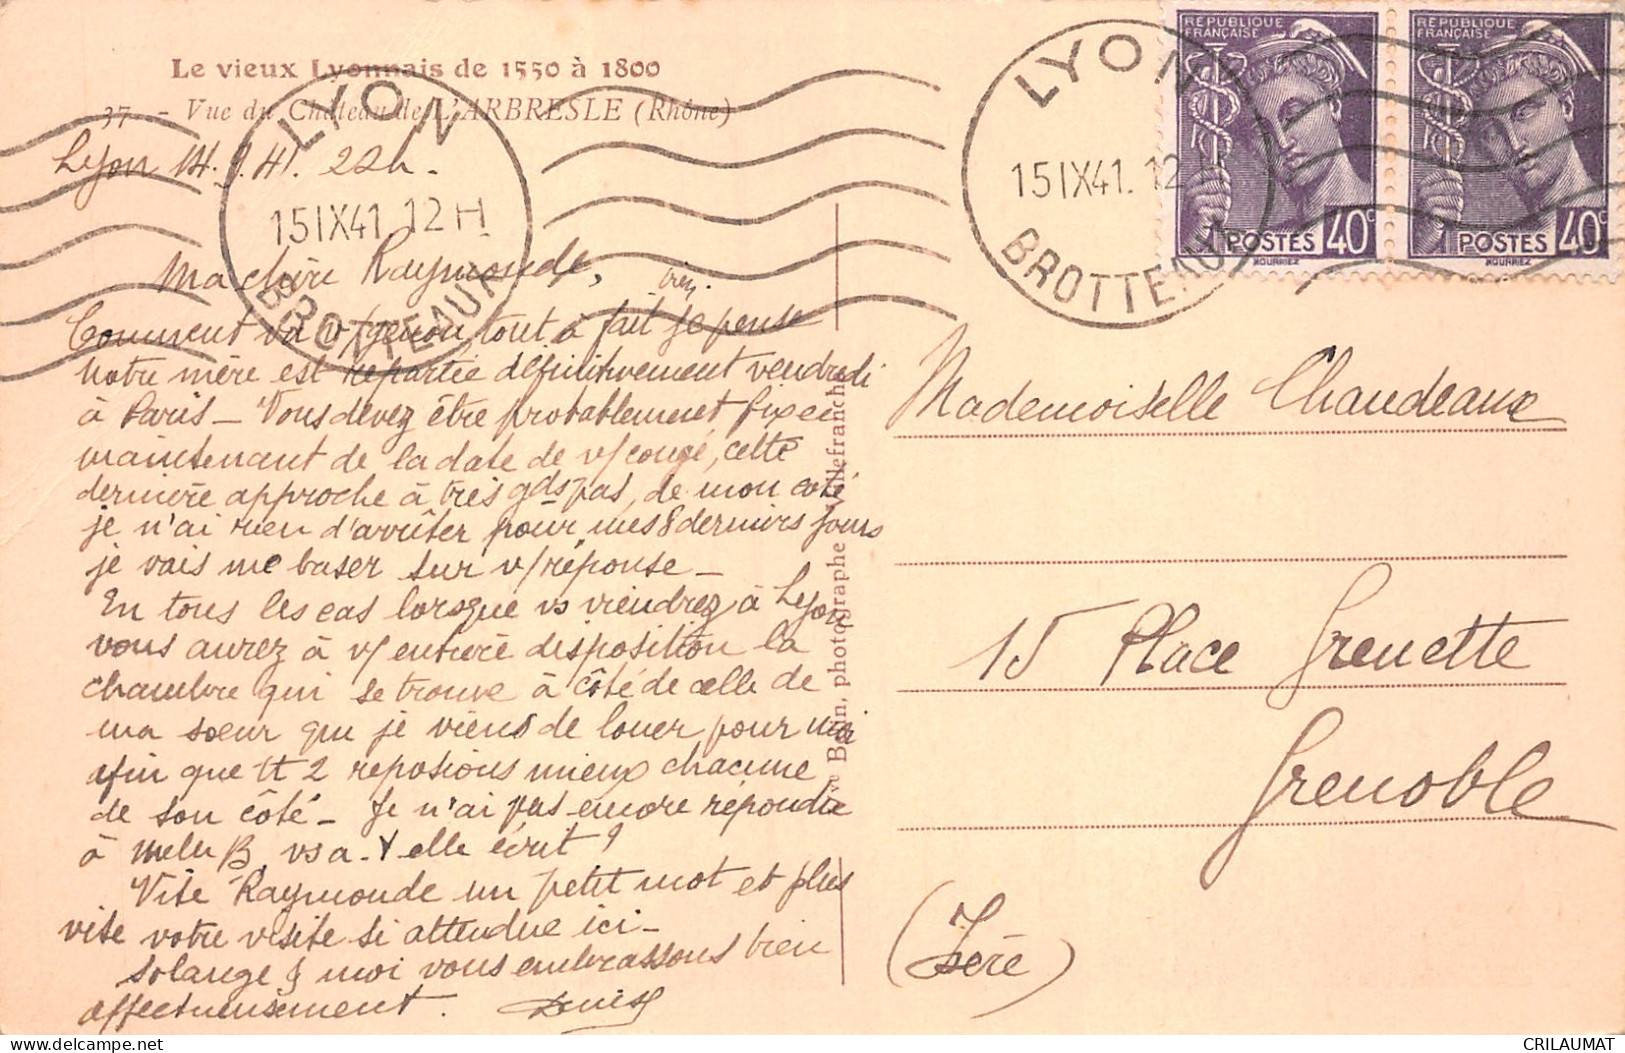 Le vieux Lyonnais de 1550 à 1800
37 - Vue du Château de L'ARBRESLE (Rhône)
Lyon 14.9.41. 22h.
LYON
15 IX 41. 12 H
BROTTEAUX
LYON
15 IX 41. 12 H
BROTTEAUX
RÉPUBLIQUE
FRANÇAISE
POSTES 40c
MOURRIEZ
RÉPUBLIQUE
FRANÇAISE
POSTES 40c
MOURRIEZ
Ma chère Raymonde,
bien.
Comment va v/genou tout à fait je pense
notre mère est repartie définitivement vendredi
à Paris - Vous devez être probablement fixée
maintenant de la date de v/congé, cette
dernière approche à très gds pas, de mon côté
je n'ai rien d'arrêter pour mes 8 derniers jours
je vais me baser sur v/réponse -
En tous les cas lorsque vs viendrez à Lyon
vous aurez à v/ entière disposition la
chambre qui se trouve à côté de celle de
ma sœur que je viens de louer pour moi
afin que tt 2 reposions mieux chacune
de son côté - Je n'ai pas encore répondre
à B. vs a-t elle écrit ?
Vite Raymonde un petit mot et plus
vite votre visite si attendue ici -
Solange & moi vous embrassons bien
affectueusement.
Vve Bron, photographe Villefranche
Mademoiselle Chaudeaux
15 Place Grenette
Grenoble
(Isère)
CRILAUMAT